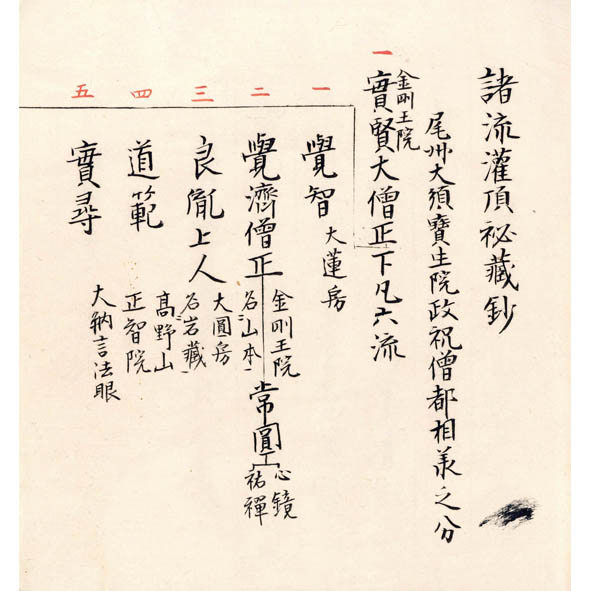 諸流灌頂祕藏鈔
尾州大須寶生院政祝僧都相羕之分
一
金剛王院
實賢大僧正下凡六流
一
覺智 大蓮房
二
覺濟僧正 金剛王院
名山本
常圓
心鏡
祐禪
三
良胤上人 大圓房
名岩藏
四
道範 髙野山
正智院
五
實尋 大納言法眼